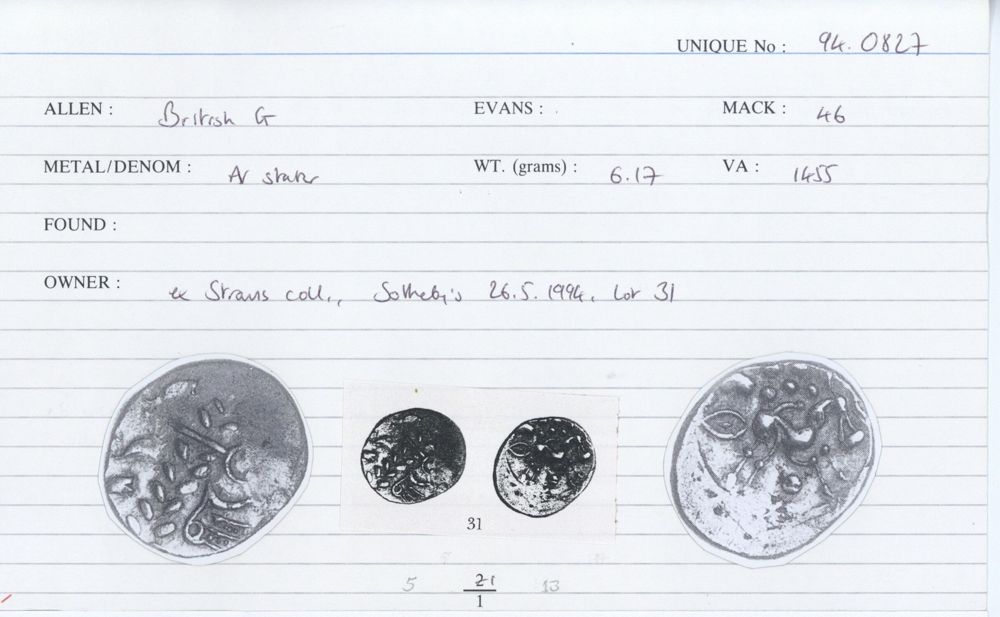 UNIQUE No : 94.0827
ALLEN : British G EVANS : MACK : 46
METAL/DENOM : AV stater WT. (grams) : 6.17 VA : 1455
FOUND :
OWNER : ex Straus coll., Sotheby's 26.5.1994, Lot 31
31
5 21 13
1